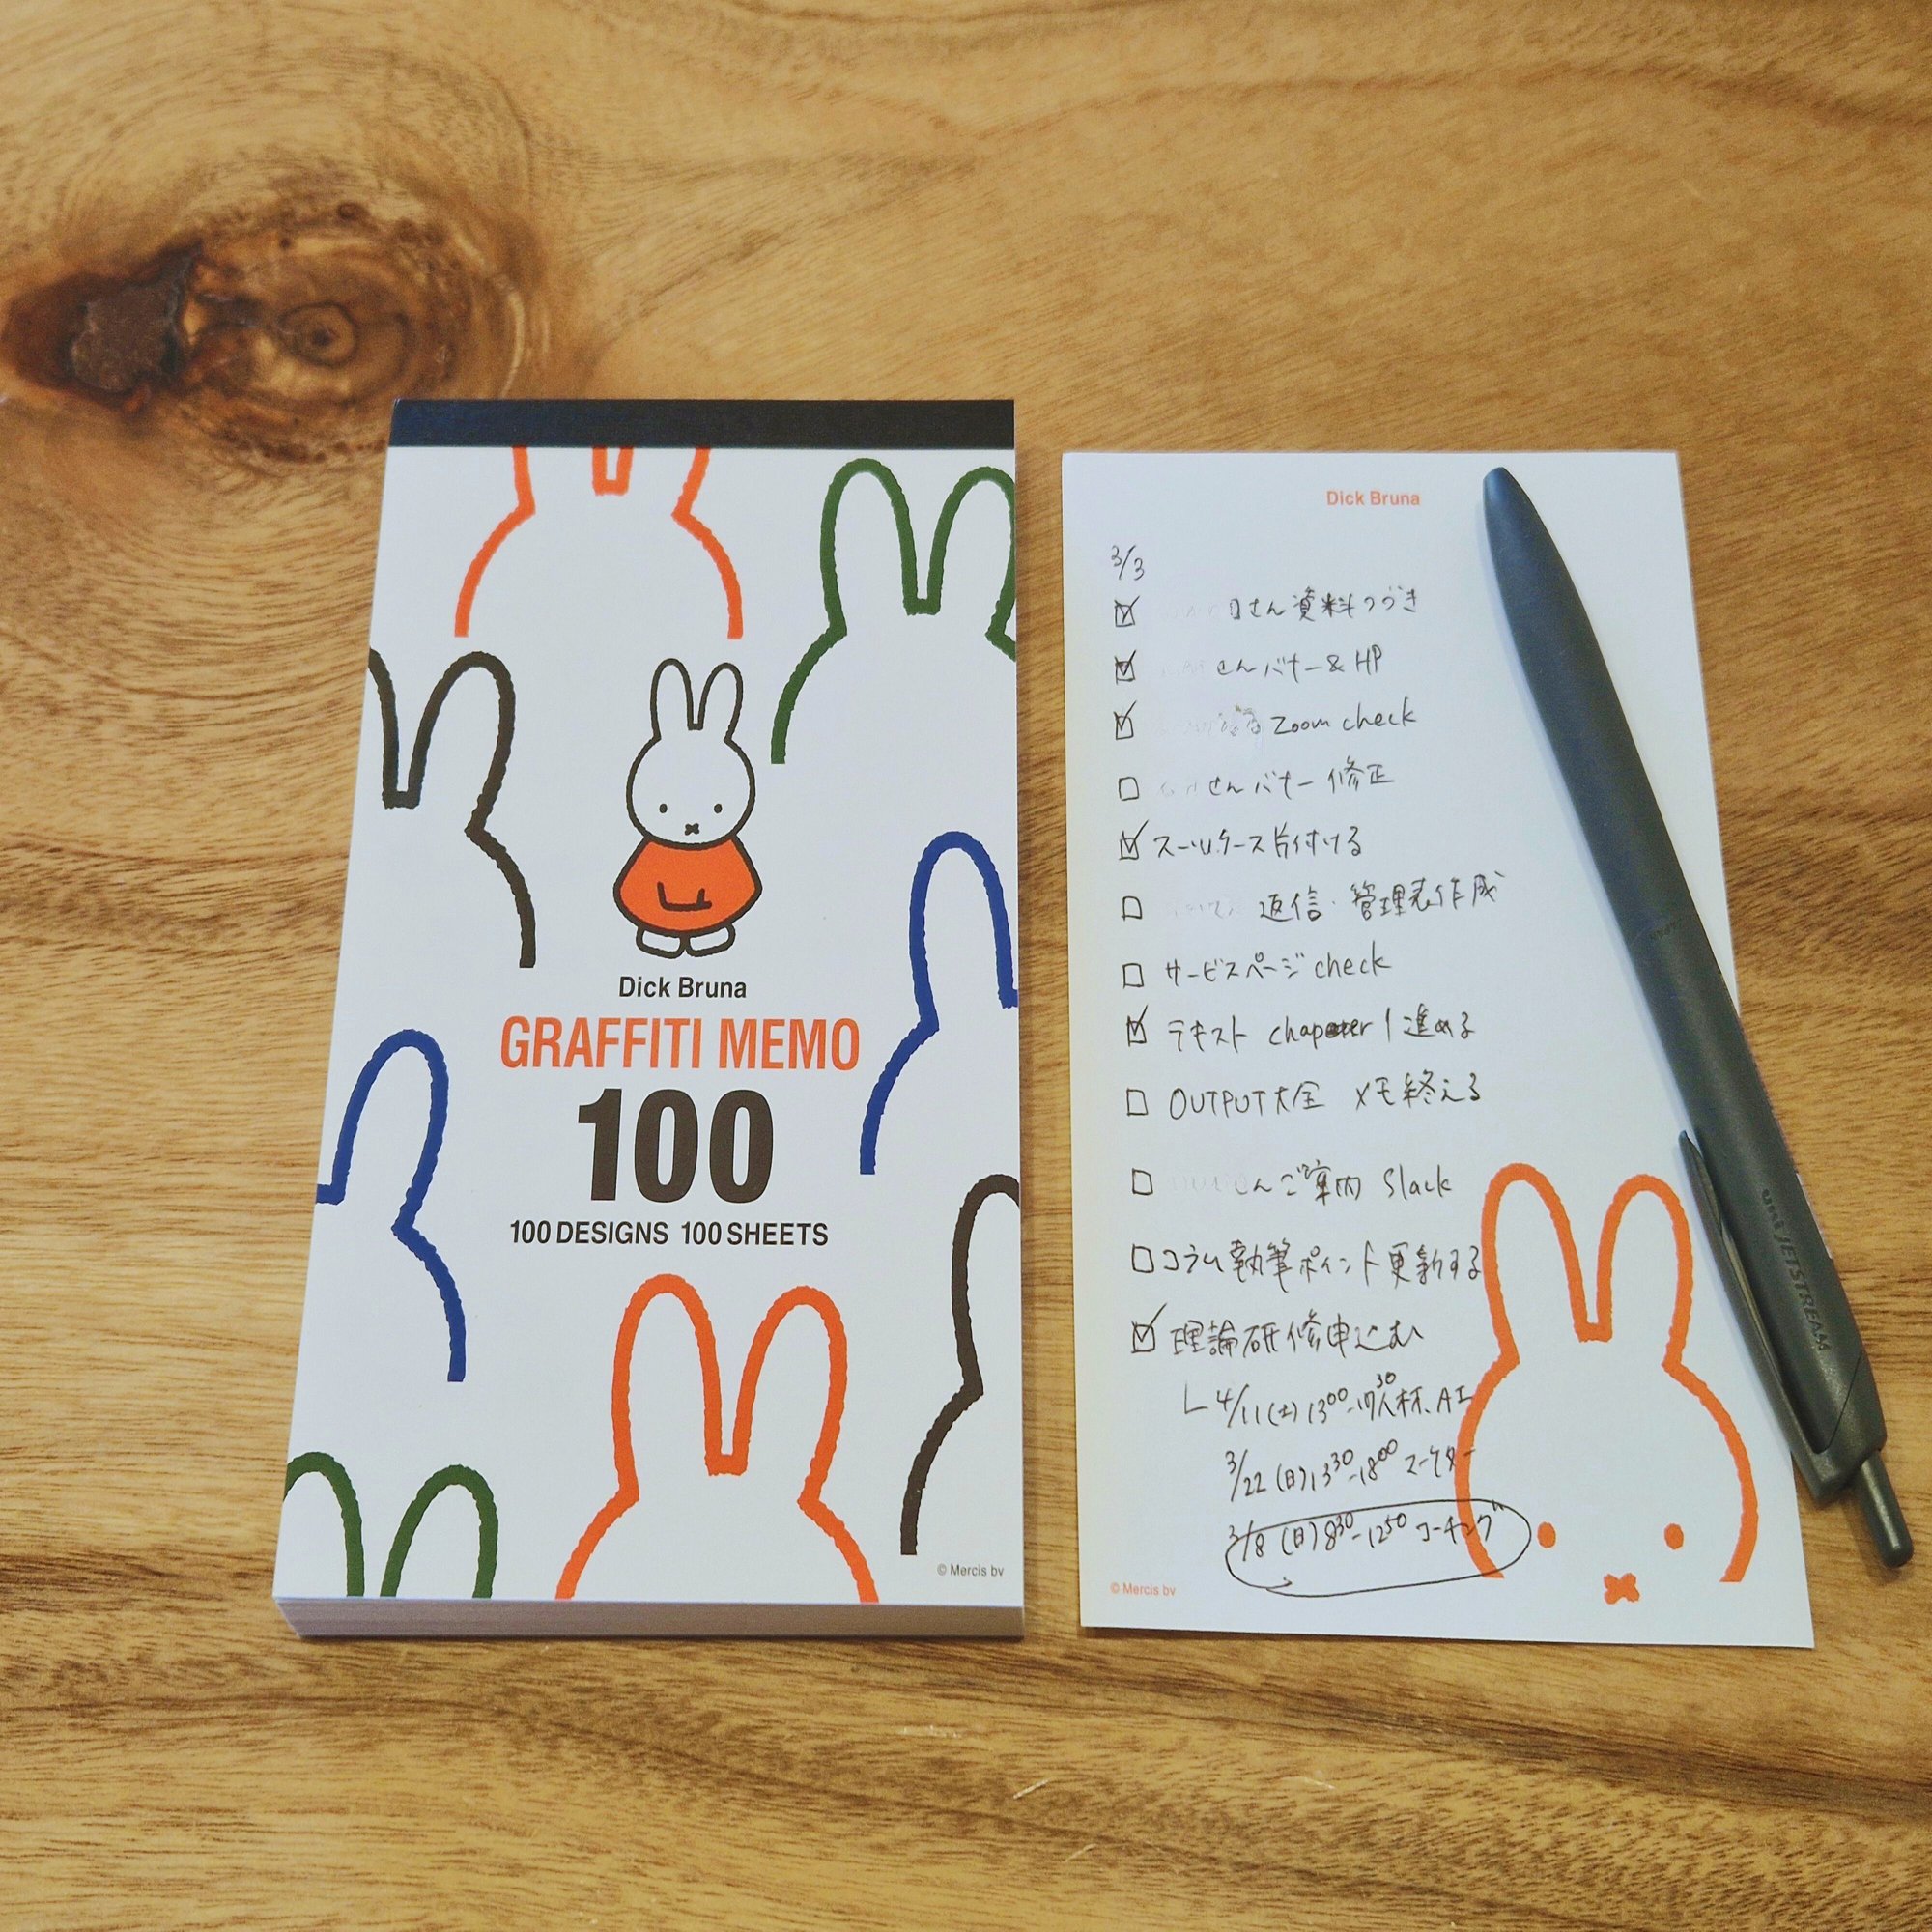 Dick Bruna
GRAFFITI MEMO
100
100 DESIGNS 100 SHEETS
© Mercis bv
Dick Bruna
3/3
さん資料つづき
さんバナー & HP
Zoom check
さんバナー修正
スーツケース片付ける
返信・管理表作成
サービスページ check
テキスト chapter 1 進める
OUTPUT大全 メモ終える
ご案内 Slack
コラム執筆ポイント更新する
理論研修申込む
4/11(土) 13:00-17:30 人材、AI
3/22(日) 13:30-18:00 マーケター
3/8(日) 8:30-12:50 コーチング
© Mercis bv
uni JETSTREAM